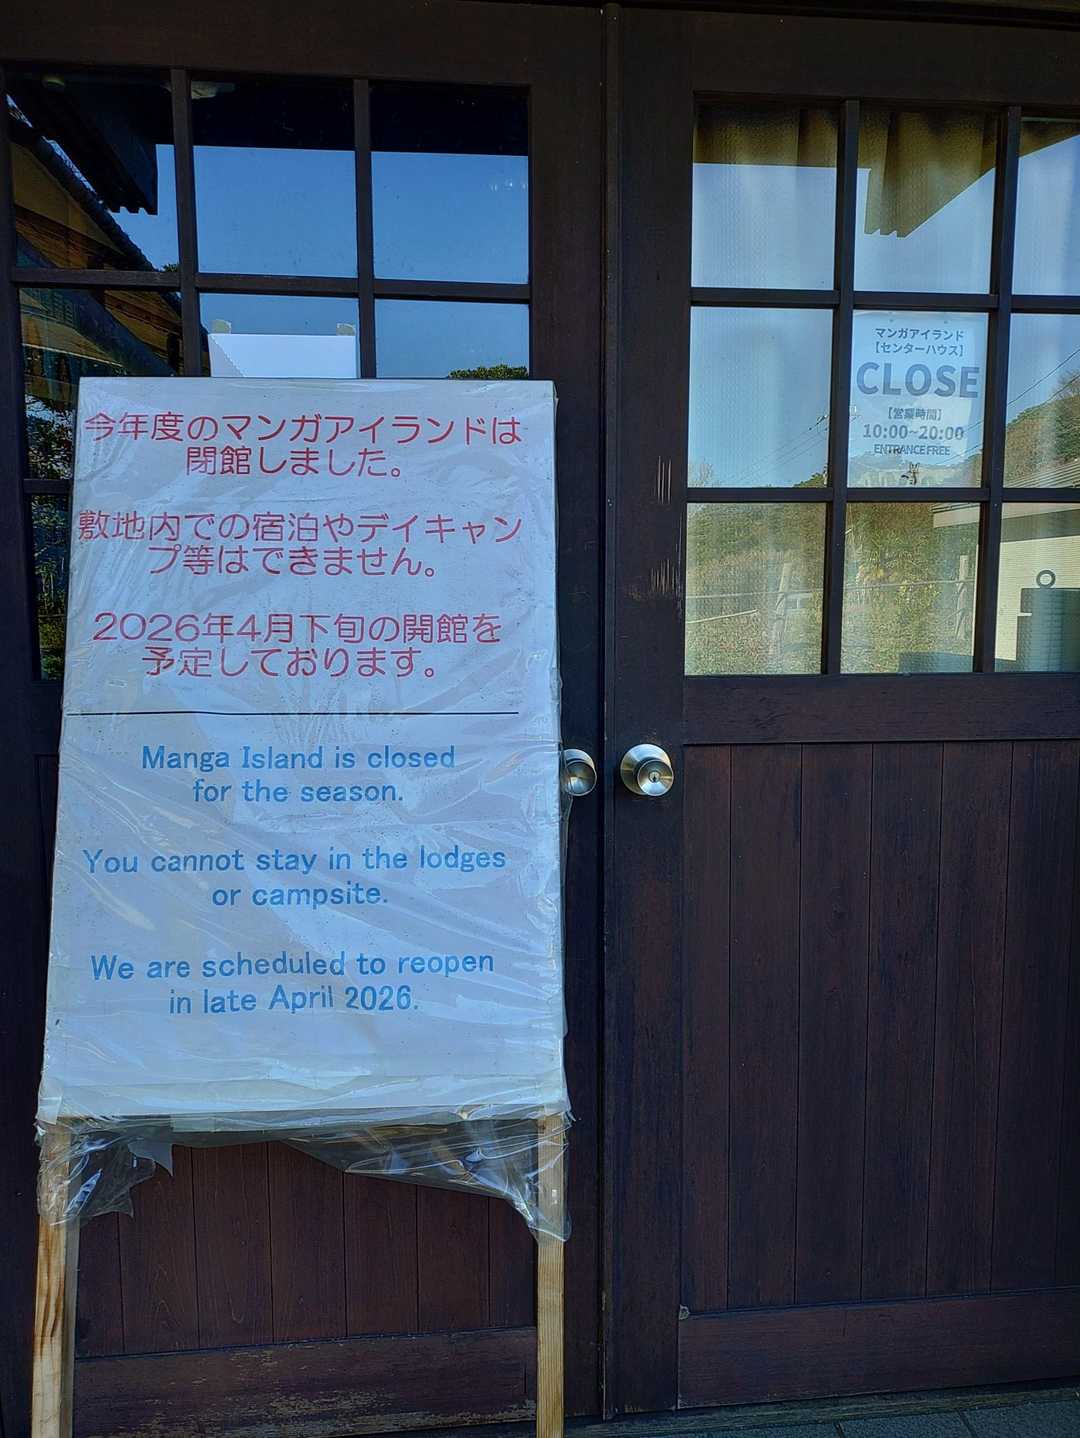 今年度のマンガアイランドは
閉館しました。
敷地内での宿泊やデイキャン
プ等はできません。
2026年4月下旬の開館を
予定しております。
Manga Island is closed
for the season.
You cannot stay in the lodges
or campsite.
We are scheduled to reopen
in late April 2026.
マンガアイランド
【センターハウス】
CLOSE
【営業時間】
10:00~20:00
ENTRANCE FREE